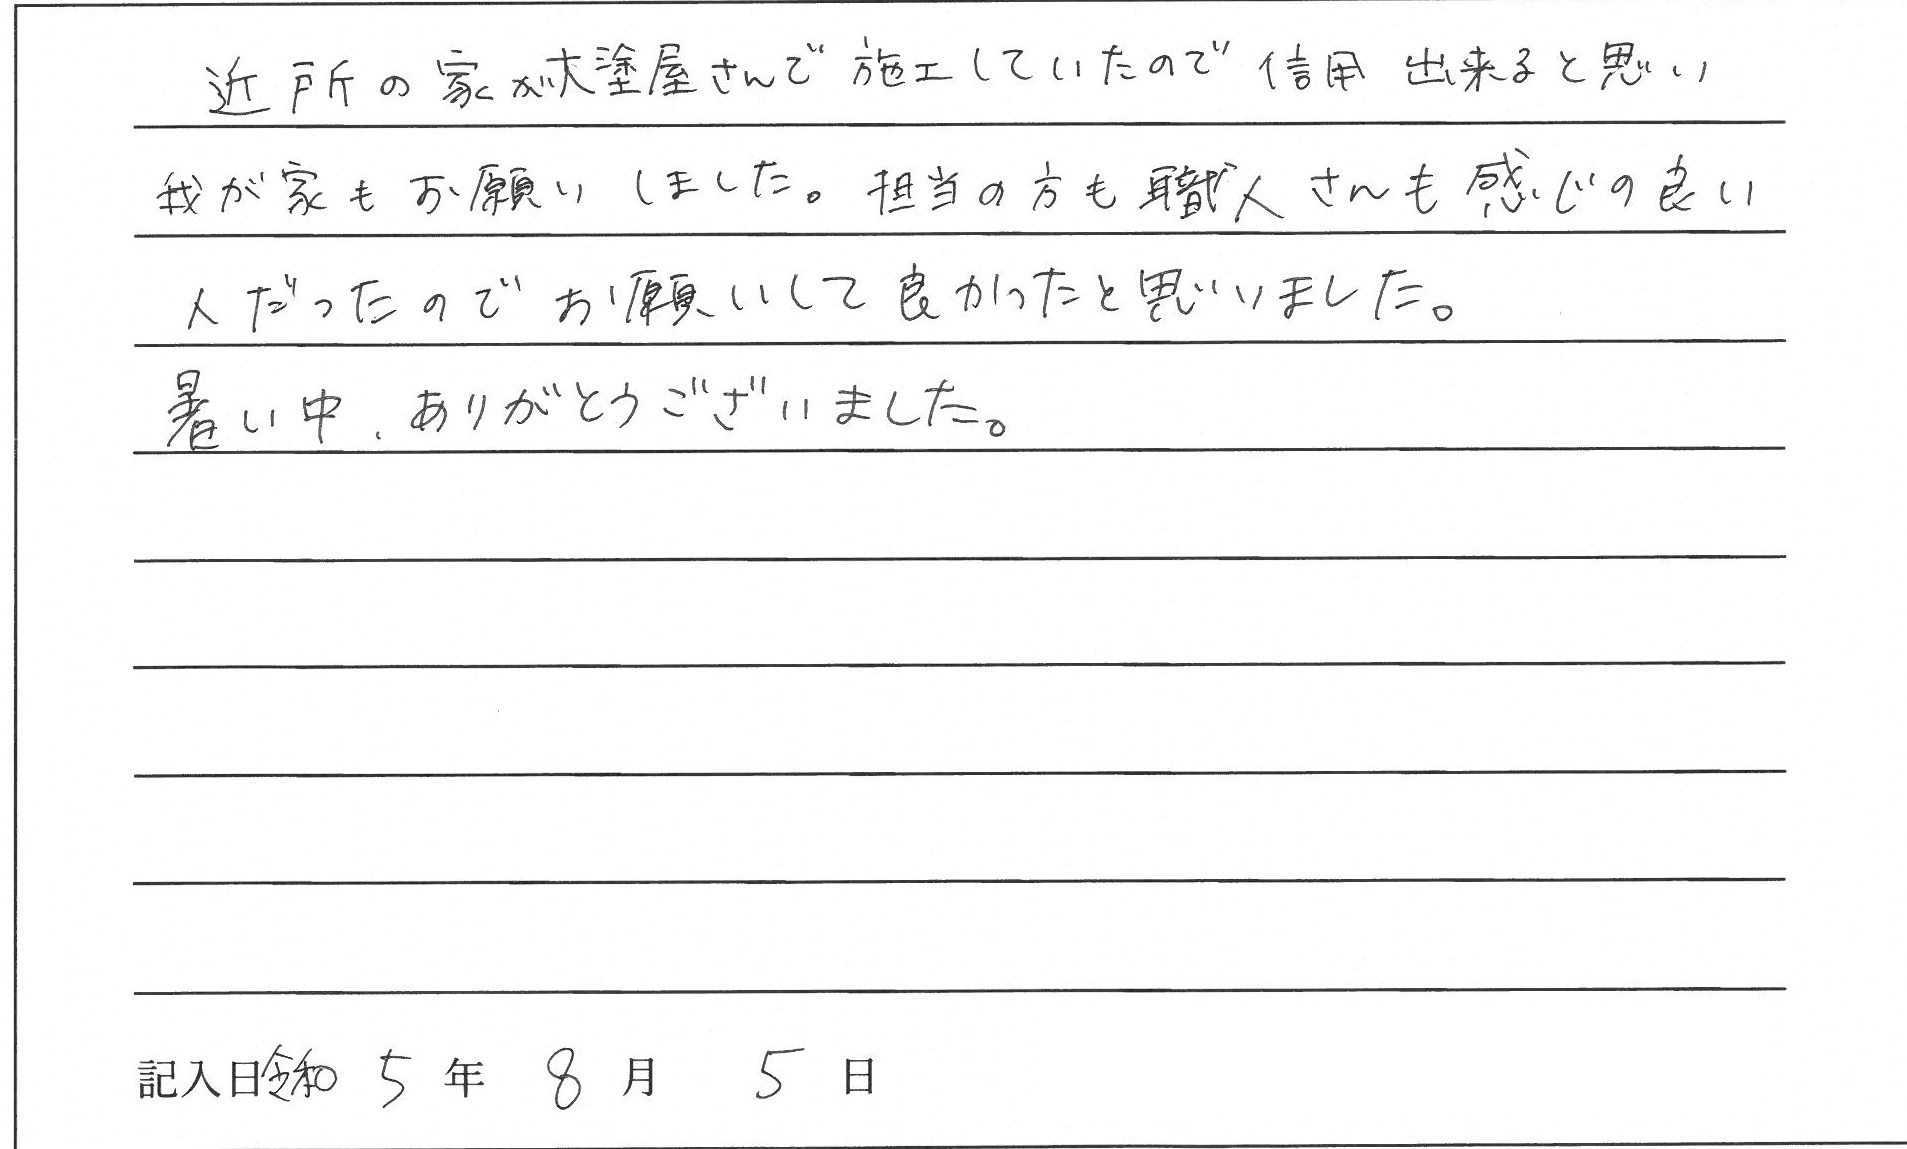 近所の家が大塗屋さんで施工していたので信用出来ると思い
我が家もお願いしました。担当の方も職人さんも感じの良い
人だったのでお願いして良かったと思いました。
暑い中、ありがとうございました。
記入日令和5年8月5日